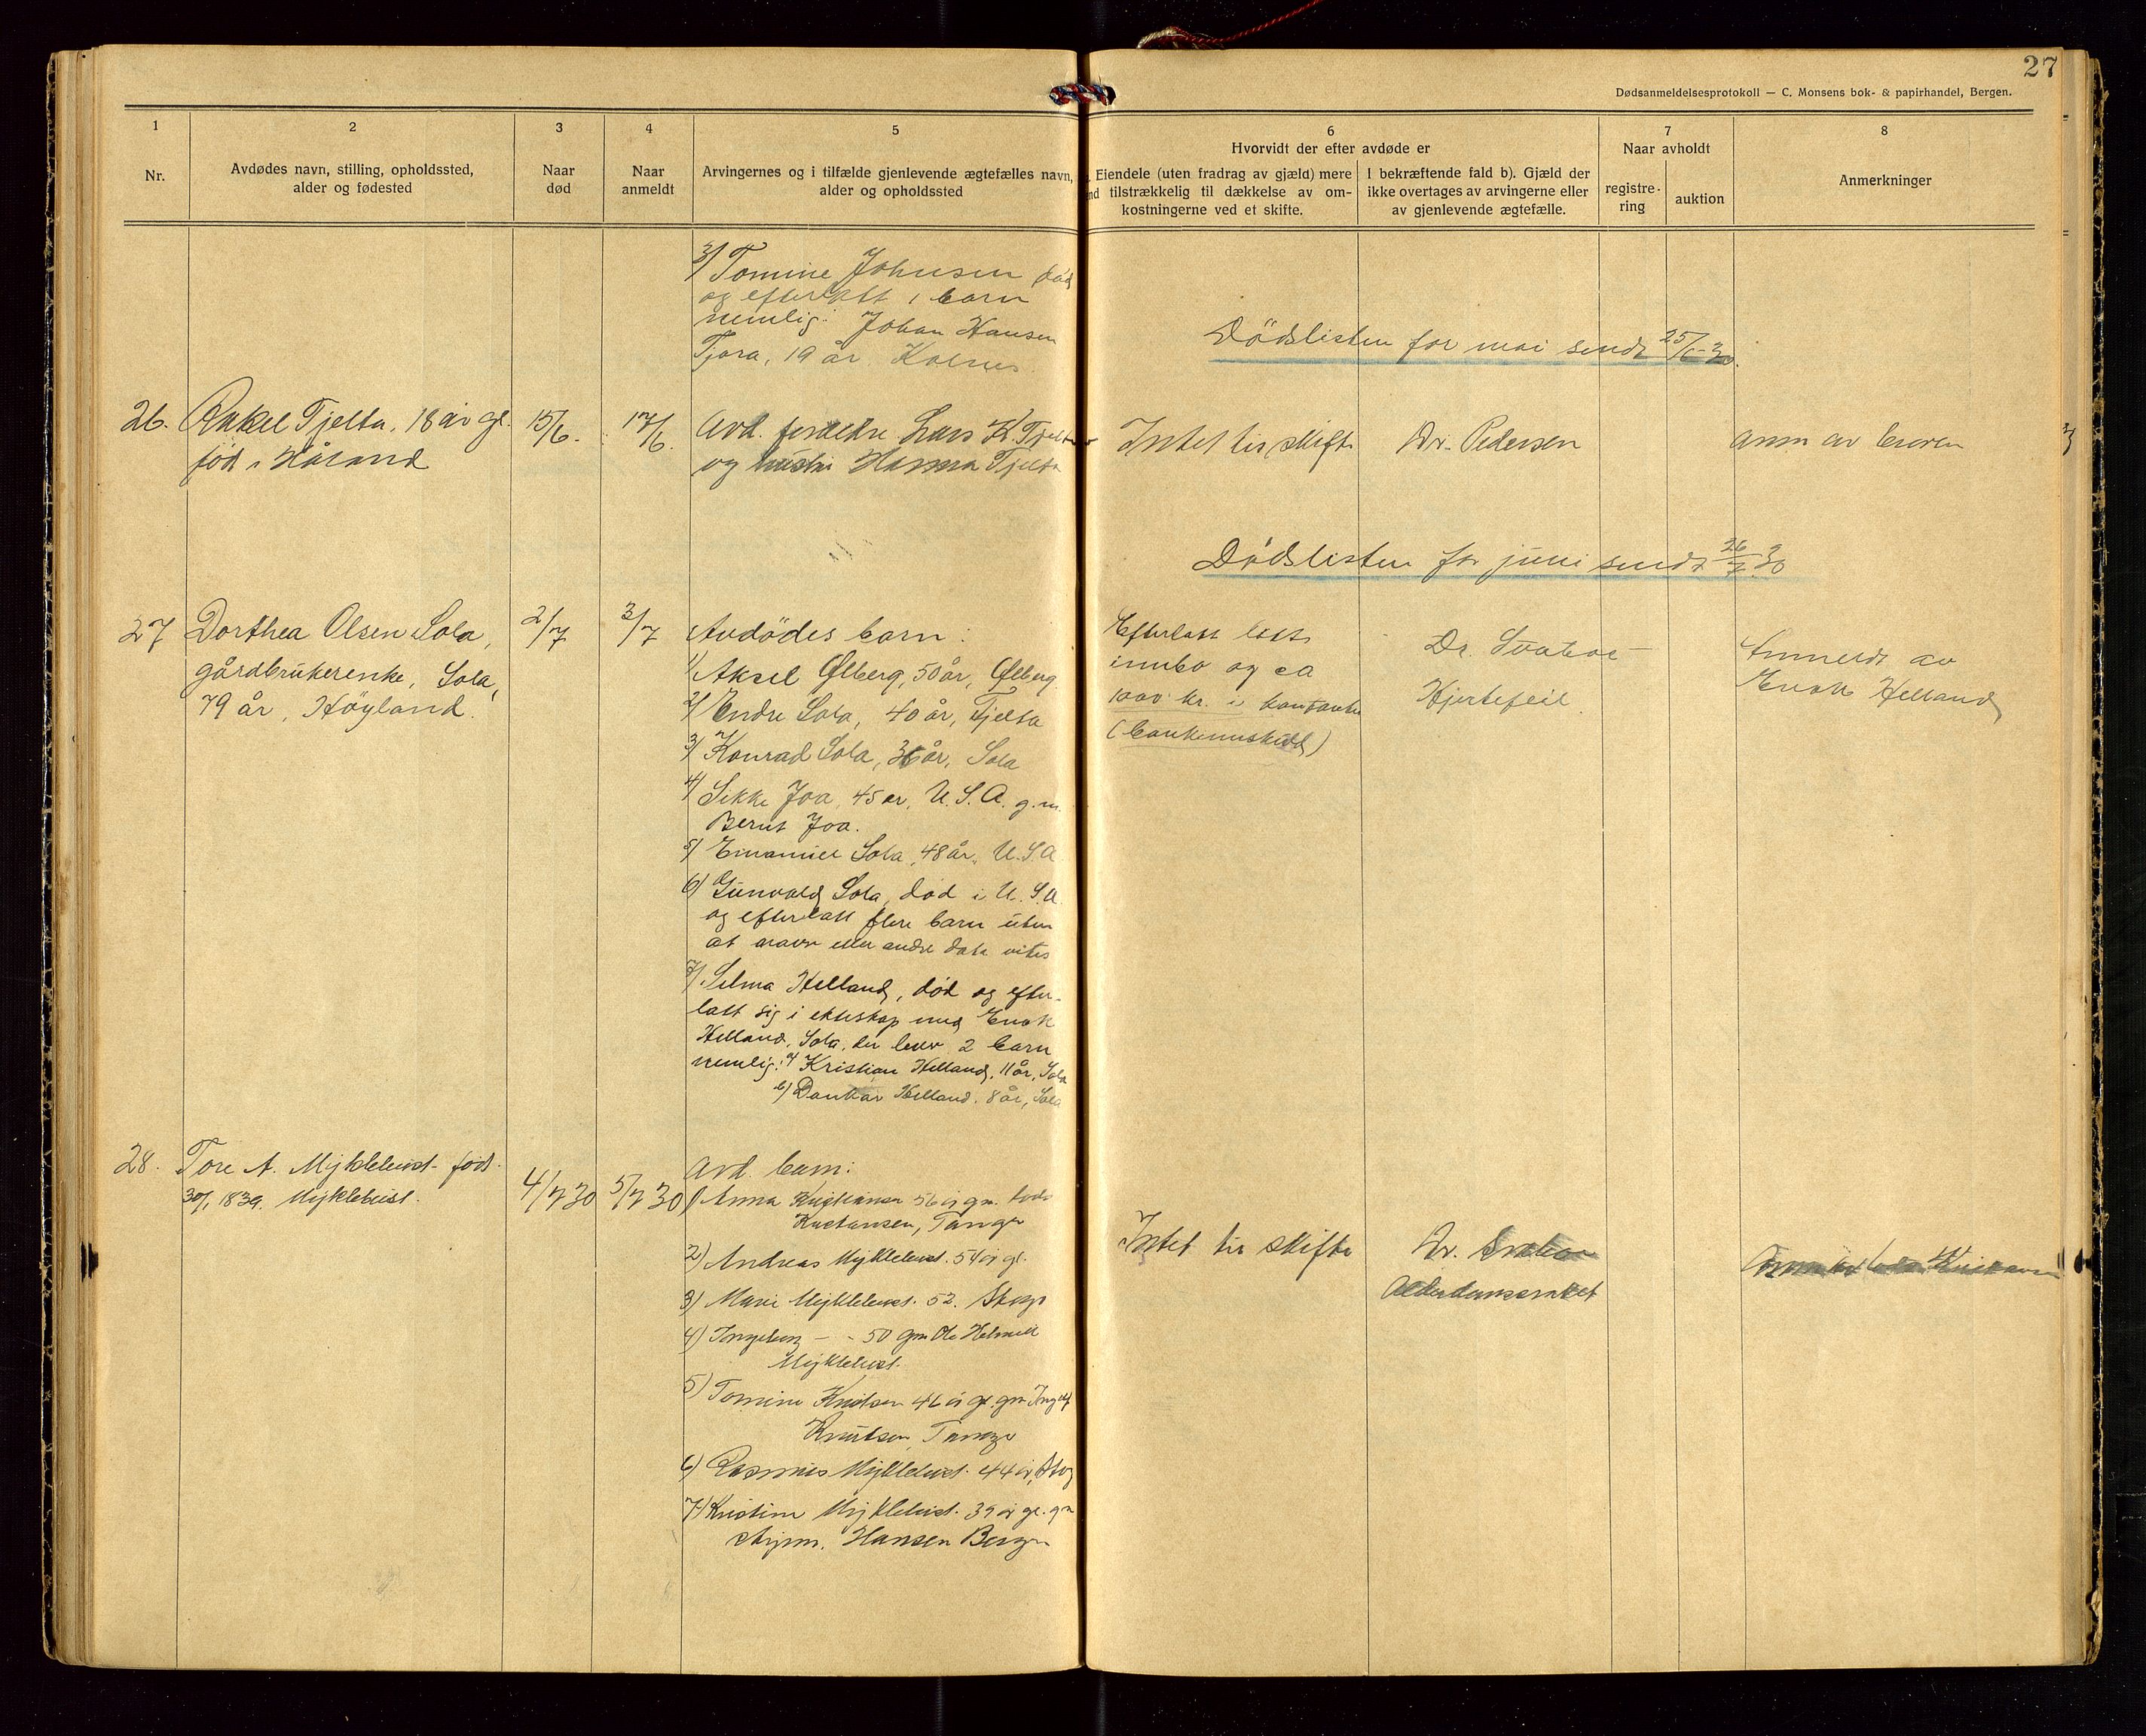 27
Dødsanmeldelsesprotokoll — C. Monsens bok- & papirhandel, Bergen.
1
2
3
4
5
6
7
8
Nr.
Avdødes navn, stilling, opholdssted,
alder og fødested
Naar
død
Naar
anmeldt
Arvingernes og i tilfælde gjenlevende ægtefælles navn,
alder og opholdssted
Hvorvidt der efter avdøde er
Eiendele (uten fradrag av gjæld) mere
tilstrækkelig til dækkelse av om-
kostningerne ved et skifte.
I bekræftende fald b). Gjæld der
ikke overtages av arvingerne eller
av gjenlevende ægtefælle.
Naar avholdt
registre-
ring
auktion
Anmerkninger
3) Tomine Johnsen død
og efterlatt 1 barn
nemlig: Johan Hansen
Tjora, 19 år Kolnes.
Dödslisten for mai sendt 25/6-30.
26. Rakel Tjelta, 18 år gl.
fød i Håland
15/6.
17/6.
Avd. foreldre Lars K. Tjelta
og hustru Hanna Tjelta
Intet til skifte
Dr. Pedersen
anm av
Dödslisten for juni sendt 26/7 30
27 Dorthea Olsen Sola,
gårdbrukerenke, Sola,
79 år, Höyland.
2/7
3/7
Avdödes barn:
1) Aksel Ølberg, 50 år, Ølberg
2) Endre Sola, 40 år, Tjelta
3) Konrad Sola, 36 år, Sola
4) Sikke Joa, 45 år, U.S.A. g.m.
Bernt Joa.
5) Emanuel Sola, 48 år, U.S.A
6) Gunvald Sola, död i U.S.A.
og efterlatt flere barn uten
at navn eller andre data vites
7) Selma Helland, död og efter-
latt sig i ekteskap med Enok
Helland, Sola, der lever 2 barn
nemlig: a) Kristian Helland, 11 år, Sola
b) Dankar Helland, 8 år, Sola
Efterlatt litt
innbo og ca
1000 kr. i kontanter
(bankinnskudd)
Dr. Svaboe
Hjertefeil.
Anmeldt av
Enok Helland
28. Tore A. Myklebust født
30/1 1839. Myklebust.
4/7 30
5/7 30
Avd. barn:
1) Anna Kristiansen 56 år gm.
Kristiansen, Tanager
2) Andreas Myklebust. 54 år gl.
3) Marie Myklebust. 52.
4) Ingeborg - - 50 gm Ole Helmik
Myklebust.
5) Tomine Knutsen 46 år gl. gm Ingolf
Knutsen, Tananger
6) Rasmus Myklebust. 44 år,
7) Kristine Myklebust. 39 år gl. gm
Hansen Bergen
Intet til skifte
Dr. Svaboe
Alderdomssvakhet